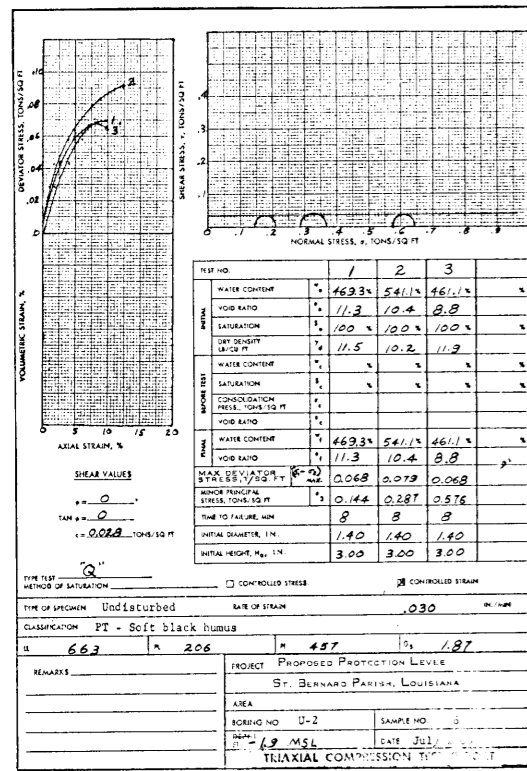 DEVIATOR STRESS, TONS/SQ FT
.10
.08
.06
.04
.02
0
2
1
3
VOLUMETRIC STRAIN, %
0 5 10 15 20
AXIAL STRAIN, %
SHEAR STRESS, τ, TONS/SQ FT
.4
.3
.2
.1
0 .1 .2 .3 .4 .5 .6 .7 .8 .9
NORMAL STRESS, σ, TONS/SQ FT
SHEAR VALUES
φ = 0 °
TAN φ = 0
c = 0.028 TONS/SQ FT
TEST NO. 1 2 3
INITIAL
WATER CONTENT 469.3% 541.1% 461.1% %
VOID RATIO 11.3 10.4 8.8
SATURATION 100 % 100 % 100 % %
DRY DENSITY LB/CU FT 11.5 10.2 11.9
BEFORE TEST
WATER CONTENT % % % %
SATURATION % % % %
CONSOLIDATION PRESS., TONS/SQ FT
VOID RATIO
FINAL
WATER CONTENT 469.3% 541.1% 461.1% %
VOID RATIO 11.3 10.4 8.8
MAX DEVIATOR STRESS, T/SQ. FT MAX. 0.068 0.079 0.068
MINOR PRINCIPAL STRESS, TONS/SQ FT σ3 0.144 0.287 0.576
TIME TO FAILURE, MIN 8 8 8
INITIAL DIAMETER, IN. 1.40 1.40 1.40
INITIAL HEIGHT, H₀, IN. 3.00 3.00 3.00
TYPE TEST "Q"
METHOD OF SATURATION
CONTROLLED STRESS
CONTROLLED STRAIN
TYPE OF SPECIMEN Undisturbed RATE OF STRAIN .030 IN./MIN
CLASSIFICATION PT - Soft black humus
LL 663 PL 206 PI 457 Gs 1.87
REMARKS
PROJECT PROPOSED PROTECTION LEVEE
ST. BERNARD PARISH, LOUISIANA
AREA
BORING NO U-2 SAMPLE NO.
EL -1.9 MSL DATE July
TRIAXIAL COMPRESSION TEST